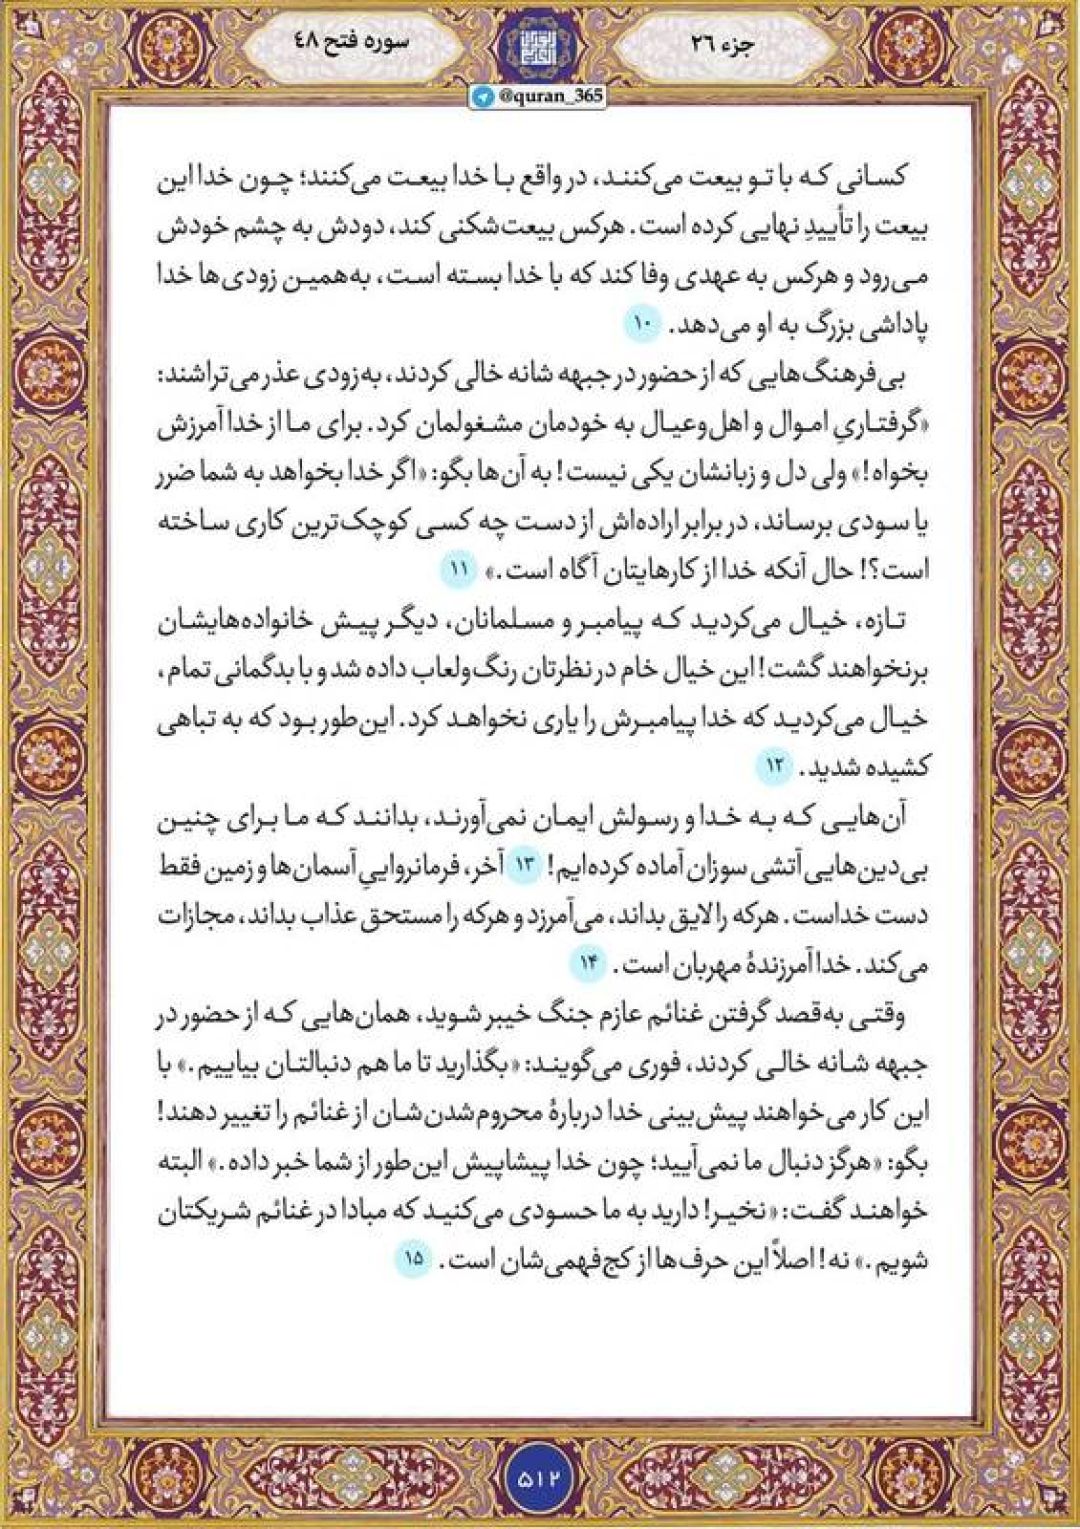 جزء ۲۶
سوره فتح ۴۸
@quran_365
کسانی که با تو بیعت می‌کنند، در واقع با خدا بیعت می‌کنند؛ چون خدا این
بیعت را تأییدِ نهایی کرده است. هرکس بیعت‌شکنی کند، دودش به چشم خودش
می‌رود و هرکس به عهدی وفا کند که با خدا بسته است، به‌همین زودی‌ها خدا
پاداشی بزرگ به او می‌دهد. ۱۰
بی‌فرهنگ‌هایی که از حضور در جبهه شانه خالی کردند، به‌زودی عذر می‌تراشند:
«گرفتاریِ اموال و اهل‌وعیال به خودمان مشغولمان کرد. برای ما از خدا آمرزش
بخواه!» ولی دل و زبانشان یکی نیست! به آن‌ها بگو: «اگر خدا بخواهد به شما ضرر
یا سودی برساند، در برابر اراده‌اش از دست چه کسی کوچک‌ترین کاری ساخته
است؟! حال آنکه خدا از کارهایتان آگاه است.» ۱۱
تازه، خیال می‌کردید که پیامبر و مسلمانان، دیگر پیش خانواده‌هایشان
برنخواهند گشت! این خیال خام در نظرتان رنگ‌ولعاب داده شد و با بدگمانی تمام،
خیال می‌کردید که خدا پیامبرش را یاری نخواهد کرد. این‌طور بود که به تباهی
کشیده شدید. ۱۲
آن‌هایی که به خدا و رسولش ایمان نمی‌آورند، بدانند که ما برای چنین
بی‌دین‌هایی آتشی سوزان آماده کرده‌ایم! ۱۳ آخر، فرمانرواییِ آسمان‌ها و زمین فقط
دست خداست. هرکه را لایق بداند، می‌آمرزد و هرکه را مستحق عذاب بداند، مجازات
می‌کند. خدا آمرزندهٔ مهربان است. ۱۴
وقتی به‌قصد گرفتن غنائم عازم جنگ خیبر شوید، همان‌هایی که از حضور در
جبهه شانه خالی کردند، فوری می‌گویند: «بگذارید تا ما هم دنبالتان بیاییم.» با
این کار می‌خواهند پیش‌بینی خدا دربارهٔ محروم‌شدن‌شان از غنائم را تغییر دهند!
بگو: «هرگز دنبال ما نمی‌آیید؛ چون خدا پیشاپیش این‌طور از شما خبر داده.» البته
خواهند گفت: «نخیر! دارید به ما حسودی می‌کنید که مبادا در غنائم شریکتان
شویم.» نه! اصلاً این حرف‌ها از کج‌فهمی‌شان است. ۱۵
۵۱۲